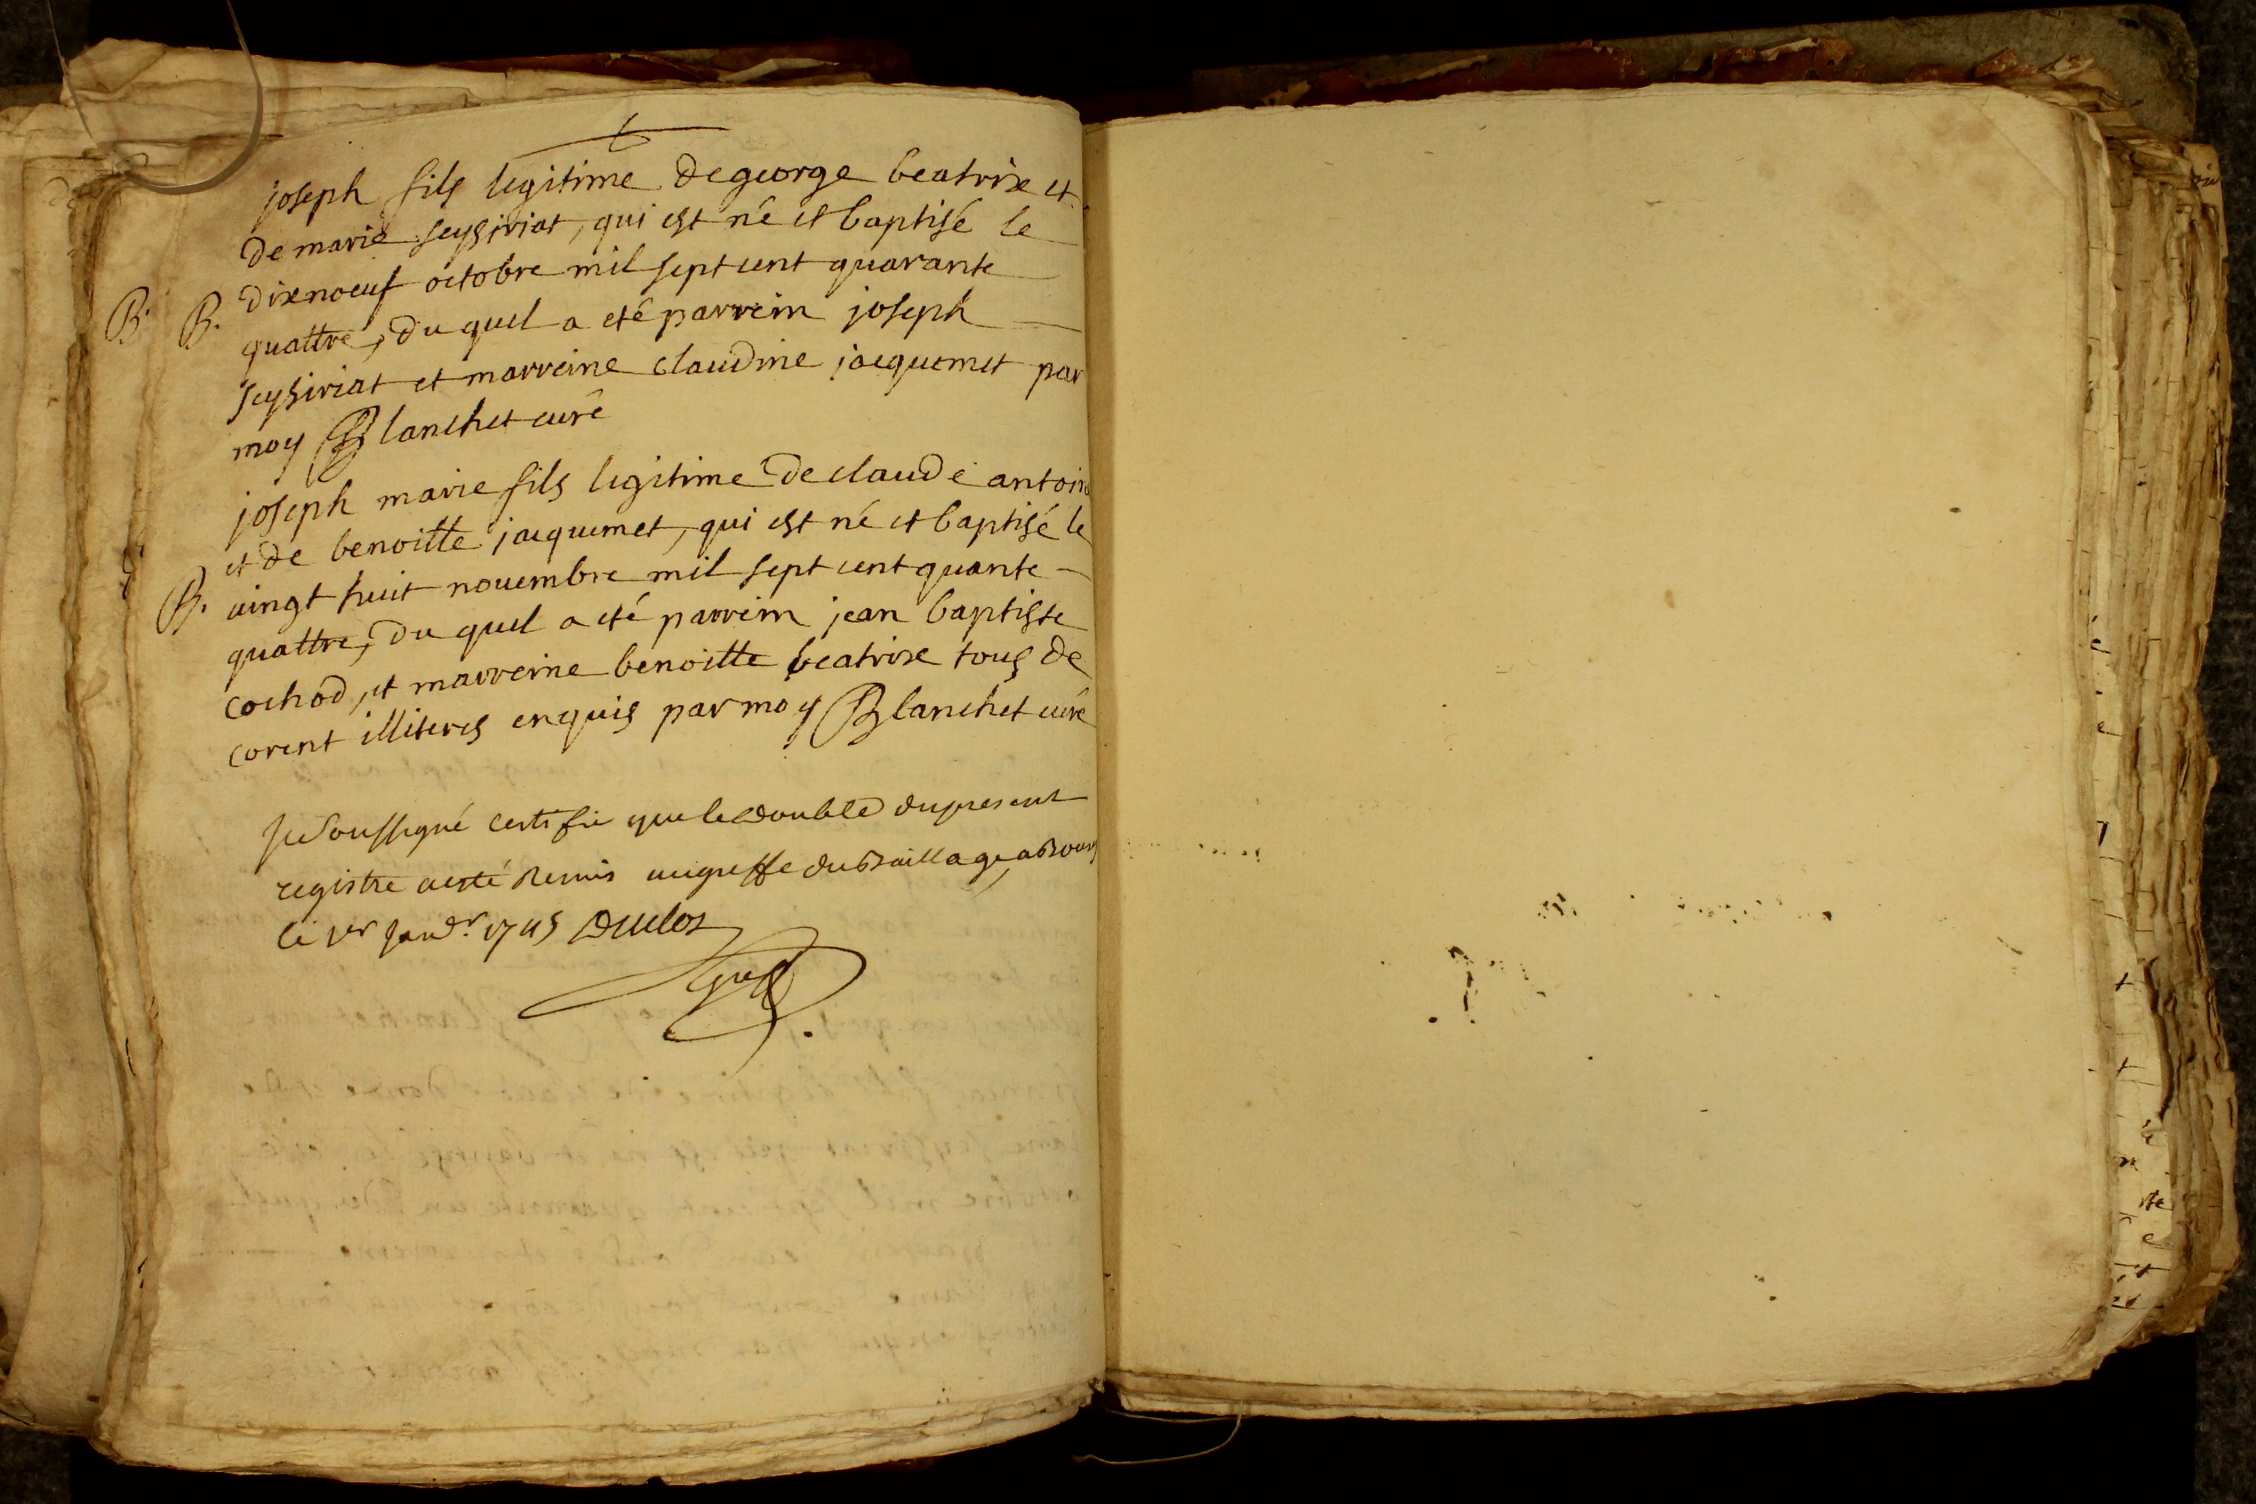 joseph fils legitime de george beatrix et
de marie seysiriat, qui est né et baptisé le
B. B. dixnoeuf octobre mil sept cent quarante
quattre, du quel a eté parrein joseph
seysiriat et marreine claudine jacquemet par
moy Blanchet curé
joseph marie fils legitime de claude antoine
et de benoitte jacquemet, qui est né et baptisé le
B. vingt huit novembre mil sept cent quante
quattre, du quel a eté parrein jean baptiste
cochod, et marreine benoitte beatrix tous de
corent illiteres enquis par moy Blanchet curé
Je soussigné certifie que le double du present
registre a esté remis au greffe du Baillage a Bourg
le 1er Janvr. 1745 Duclos